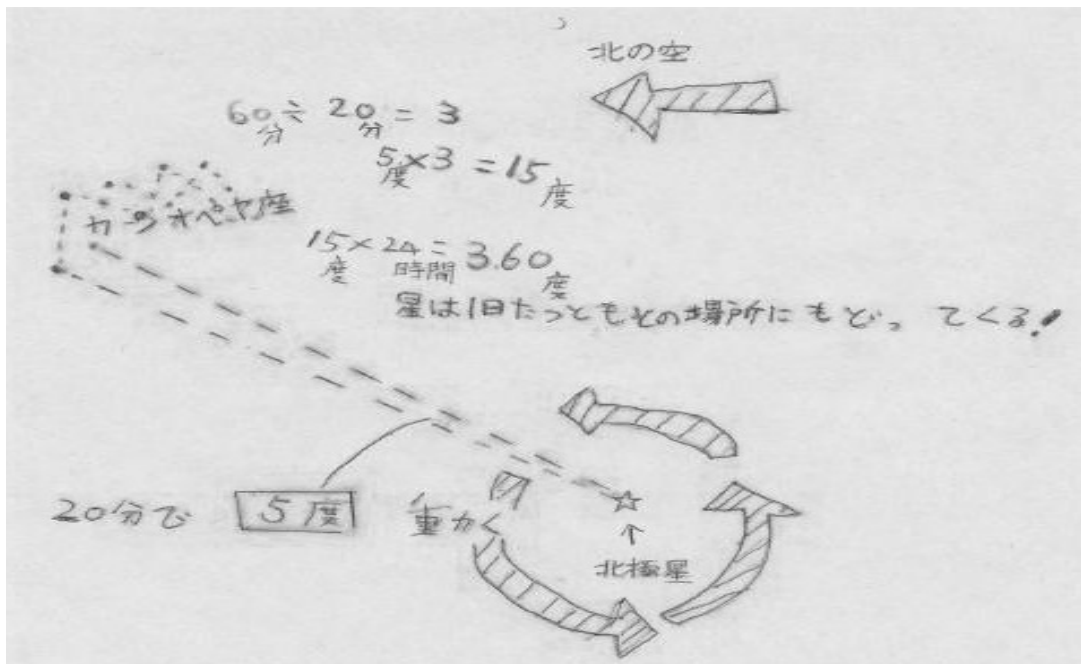 北の空
60分÷20分=3
5度×3=15度
カシオペヤ座
15度×24時間=3.60度
星は1日たつともとの場所にもどってくる!
20分で 5度 動く
北極星